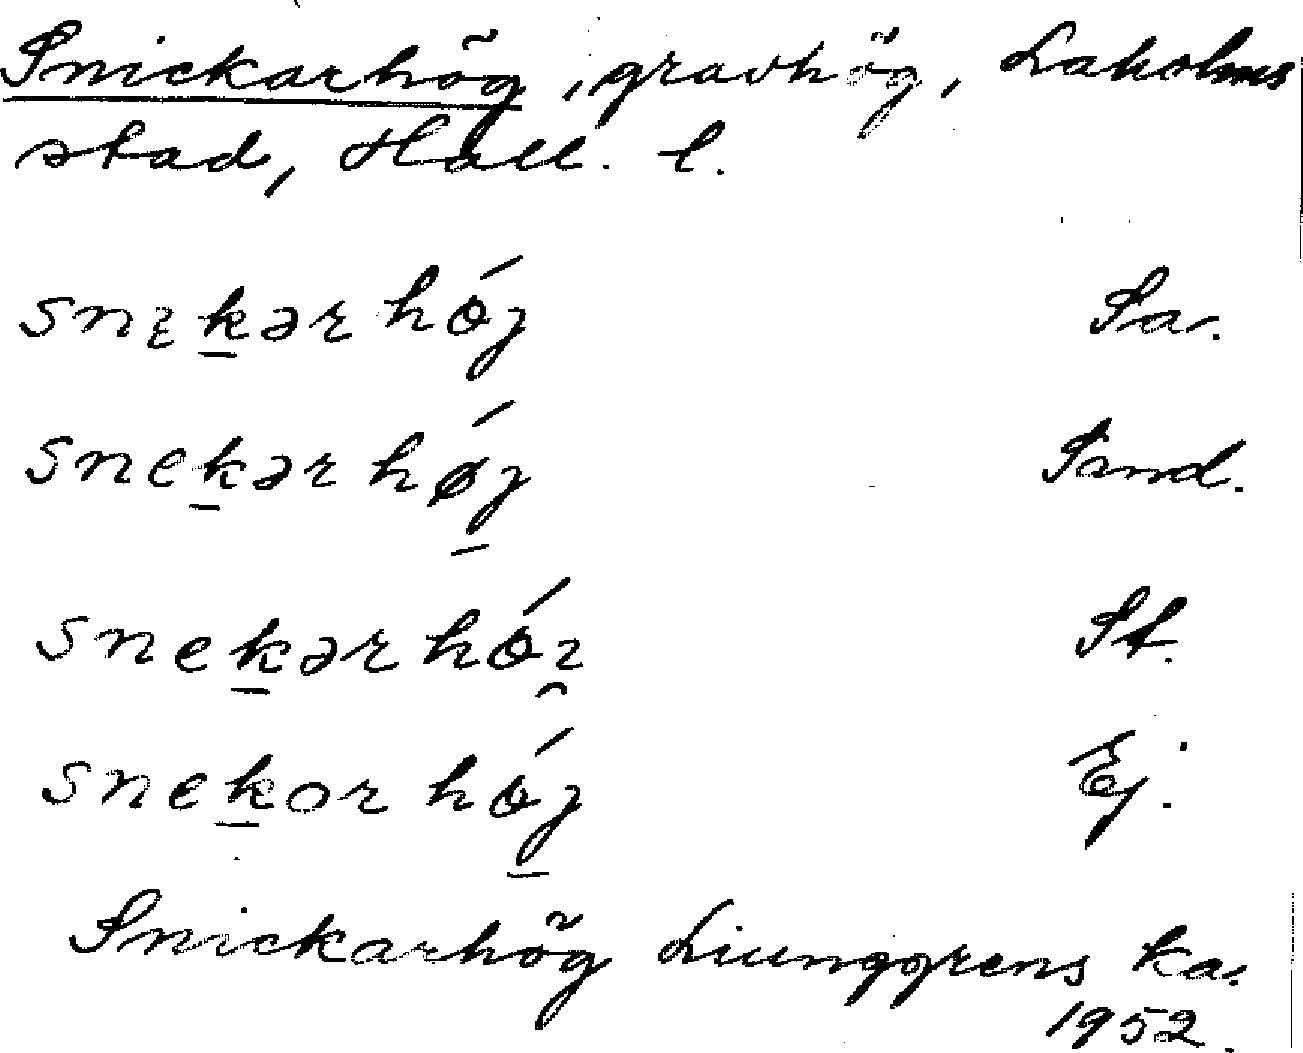 Snickarhög, gravhög, Laholms
stad, Hall. l.
snɛk̲ərhǿj Sa.
snek̲ərhǿj̲ Smd.
snek̲ərhǿɪ̯ St.
snek̲orhǿj̲ Ej.
Snickarhög Liunggrens ka.
1952.